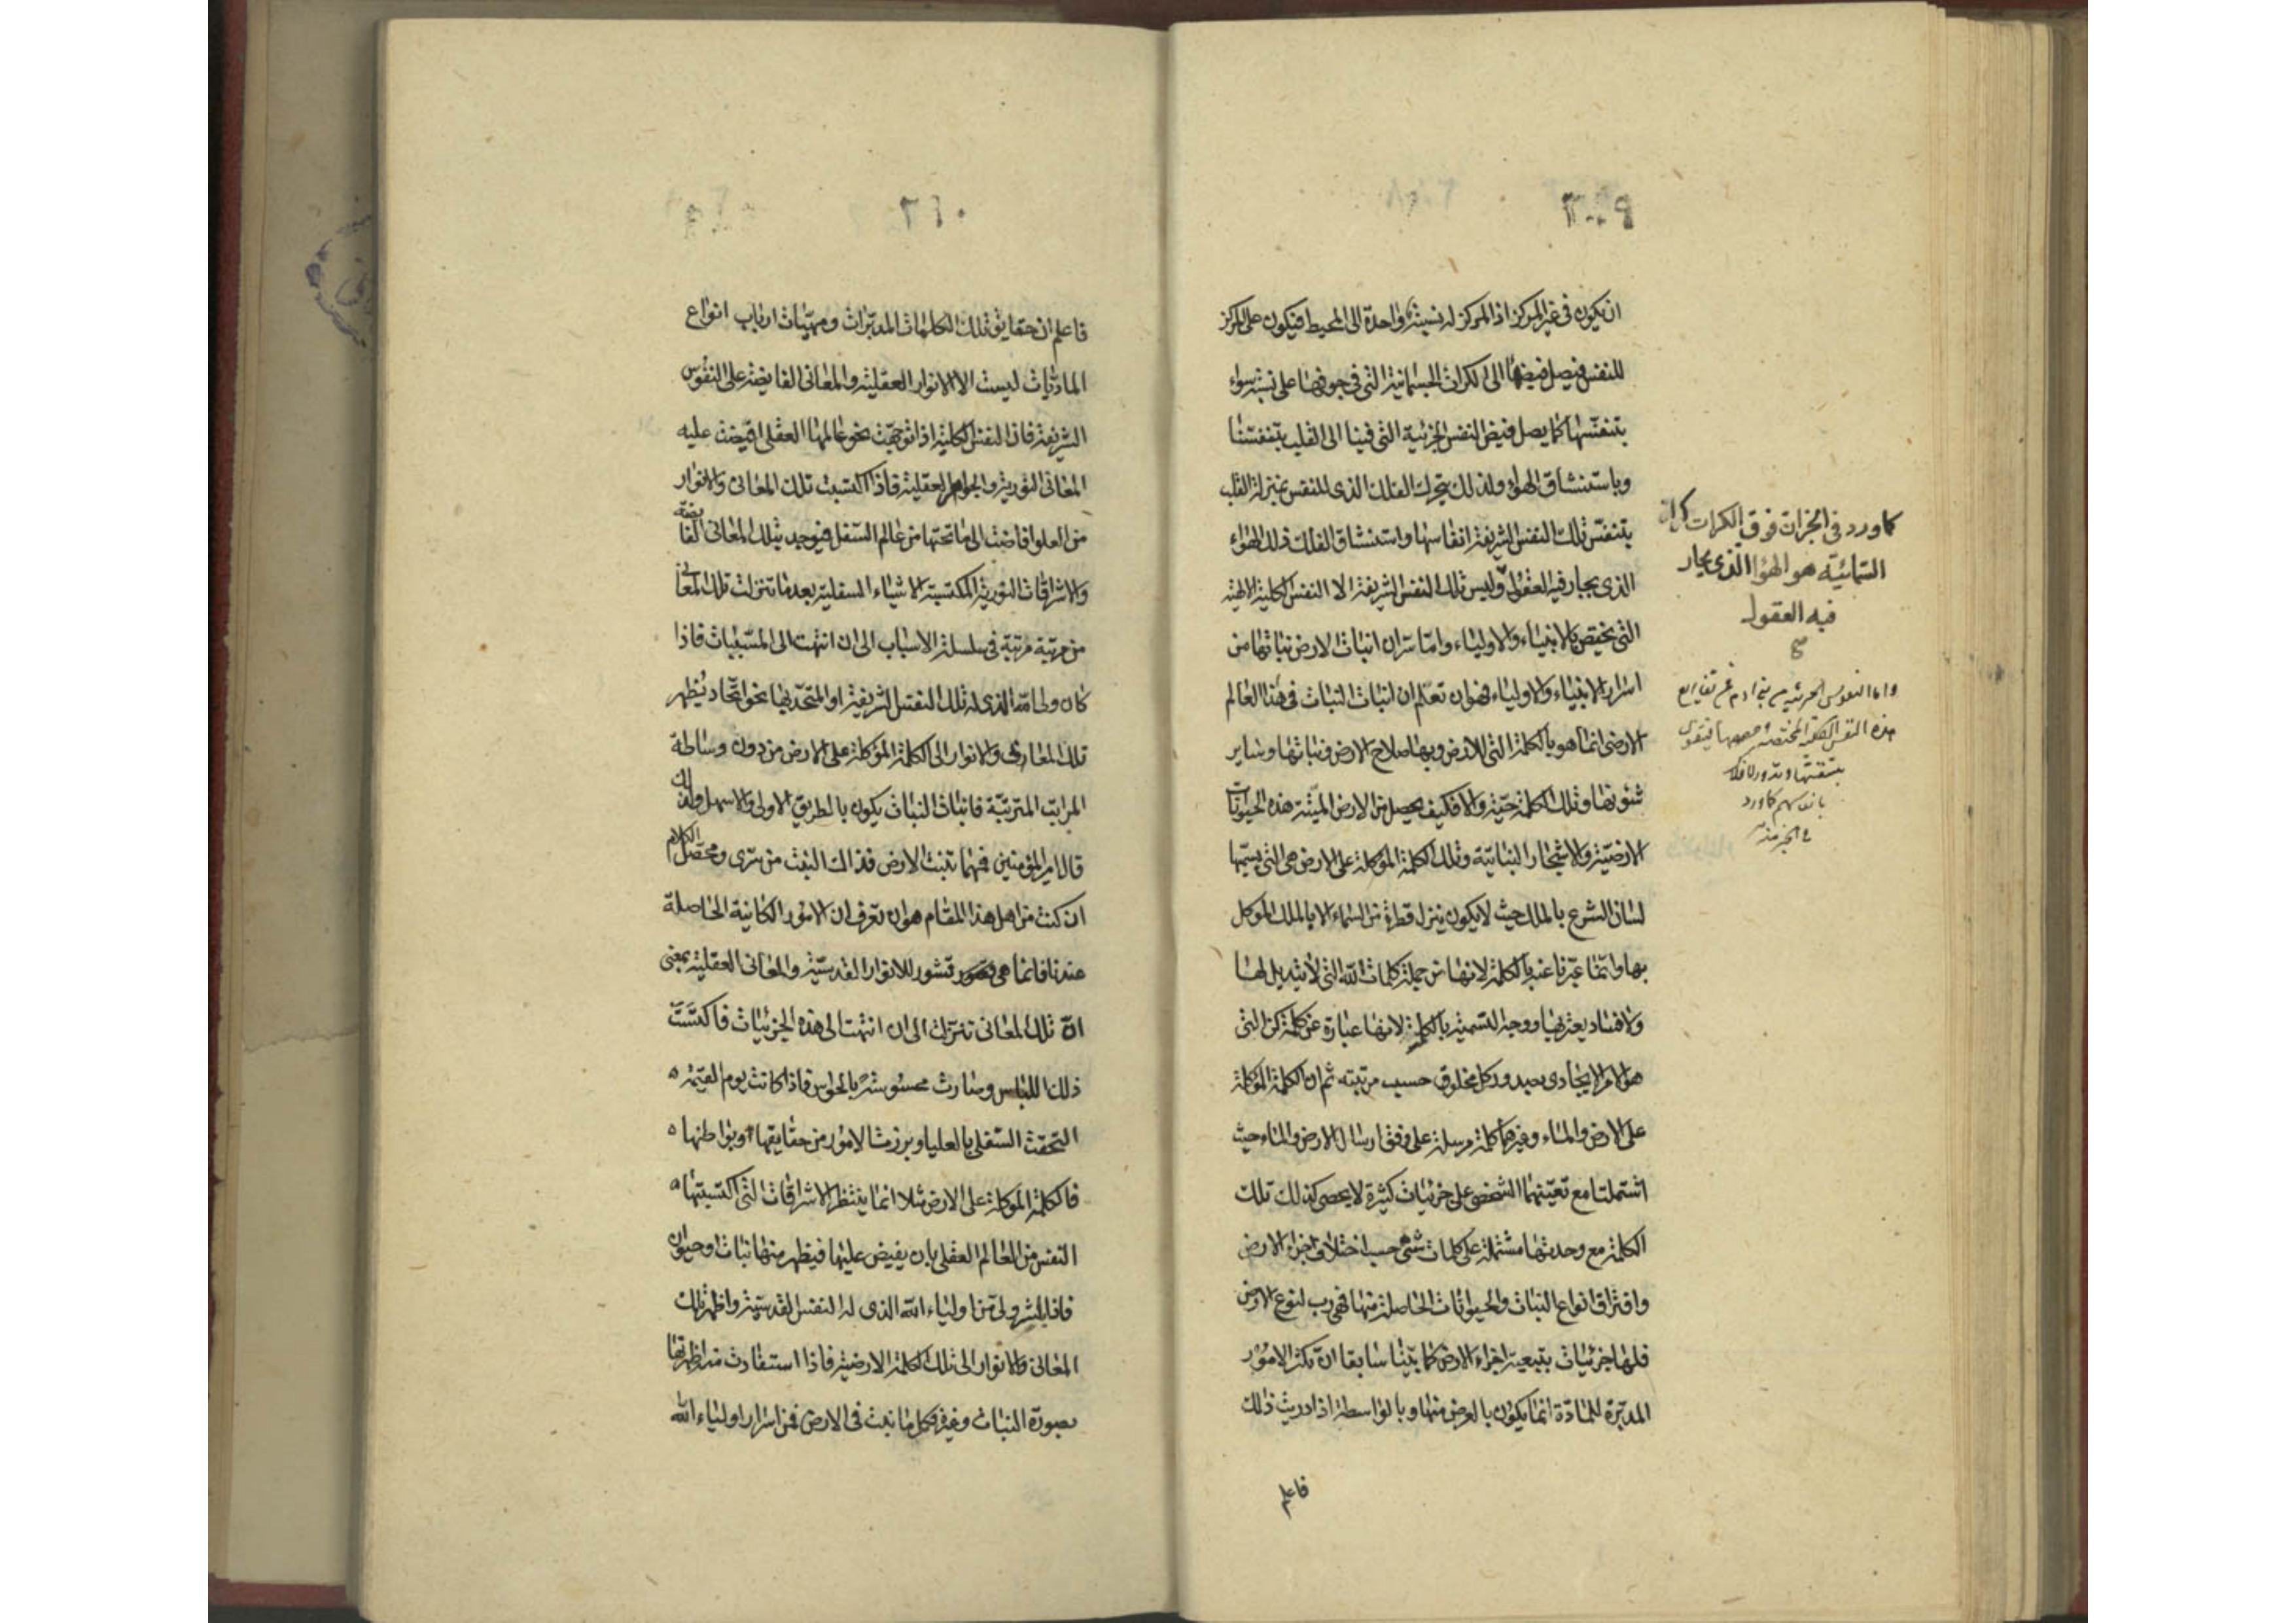 ٣٠٩
ان يكون فى غير المركز اذ المركز له نسبة واحدة الى المحيط فيكون على المركز
للنفس فيصل فيضها الى الكرات الجسمانية التى فى جوفها على نسبة سواء
بتنفسها كما يصل فيض النفس الجزئية التى فينا الى القلب بتنفسنا
وباستنشاق الهواء ولذلك يتحرك الفلك الذى للنفس بمنزلة القلب
بتنفس تلك النفس الشريفة انفاسها واستنشاق الفلك ذلك الهواء
الذى يحار فيه العقول وليس تلك النفس الشريفة الا النفس الكلية الالهية
التى يختص بالانبياء والاولياء واما سر ان انبات الارض نباتها من
اسرار الانبياء والاولياء فهو ان تعلم ان انبات النبات فى هذا العالم
الارضى انما هو بالكلمة التى للارض وبها صلاح الارض ونباتها وساير
شئونها وتلك الكلمة حية والا فكيف يحصل من الارض الميتة هذه الحيوانات
الارضية والاشجار النباتية وتلك الكلمة الموكلة على الارض هى التى يسميها
لسان الشرع بالملك حيث لا يكون ينزل قطرة من السماء الا بالملك الموكل
بها وانما عبرنا عنه بالكلمة لانها من جملة كلمات الله التى لا تبديل لها
ولا فساد يعتريها ووجه التسمية بالكلمة لانها عبارة عن كلمة كن التى
هو الامر الايجادى بصدور كل مخلوق حسب مرتبته ثم ان الكلمة الموكلة
على الارض والماء وغيرهما كلمة مرسلة على وفق ارسال الارض والماء حيث
اشتملتا مع تعينهما الشخصى على جزئيات كثيرة لا يحصى كذلك تلك
الكلمة مع وحدتها مشتملة على كلمات شتى حسب اختلاف اجزاء الارض
وافتراق انواع النبات والحيوانات الحاصلة منها فهى رب لنوع الارض
فلها جزئيات بتبعية اجزاء الارض كما بينا سابقا ان تكثر الامور
المدبرة للمادة انما يكون بالعرض منها وبالواسطة اذا دريت ذلك
فاعلم
كما ورد فى الخبر ان فوق الكرات
السمائية هو الهواء الذى يحار
فيه العقول
صح
واما النفوس الجزئية من بنى ادم
هذه النفس
بتنفسها وتدور الافلاك
بانفاسهم كما ورد
فى الخبر منه
٣١٠
فاعلم ان حقايق تلك الكلمات المدبرات ومهيات ارباب انواع
الماديات ليست الا الانوار العقلية والمعانى الفايضة على النفوس
الشريفة فان النفس الكلية اذا توجهت نحو عالمها العقلى افيضت عليه
المعانى النورية والجواهر العقلية فاذا اكتسبت تلك المعانى والانوار
من العلو افاضت الى ما تحتها من عالم السفل فيوجد بتلك المعانى الفايضة
والاشراقات النورية المكتسبة الاشياء السفلية بعد ما تنزلت تلك المعانى
من مرتبة مرتبة فى سلسلة الاسباب الى ان انتهت الى المسببات فاذا
كان وطاة الذى له تلك النفس الشريفة او المتحد بها نحو اتحاد يظهر
تلك المعارف والانوار الى الكلمة الموكلة على الارض من دون وساطة
المراتب المترتبة فانبات النبات يكون بالطريق الاولى والاسهل ولذلك
قال امير المؤمنين فمهما تنبت الارض فذاك النبت من سرى ومحصل الكلام
ان كنت من اهل هذا المقام هو ان تعرف ان الامور الكاينة الحاصلة
عندنا فانما هى قشور للانوار القدسية والمعانى العقلية بمعنى
ان تلك المعانى تنزلت الى ان انتهت الى هذه الجزئيات فاكتست
ذلك اللباس وصارت محسوسة بالحواس فاذا كانت يوم القيمة
التحقت السفلى بالعليا وبرزت الامور من حقايقها وبواطنها
فالكلمة الموكلة على الارض مثلا انما ينتظر الاشراقات التى اكتسبتها
النفس من العالم العقلى بان يفيض عليها فيظهر منها نبات وحيوان
فاذا باشر ولى من اولياء الله الذى له النفس القدسية واظهر تلك
المعانى والانوار الى تلك الكلمة الارضية فاذا استفادت منه اظهرتها
بصورة النبات وغيره فكل ما نبت فى الارض فمن اسرار اولياء الله